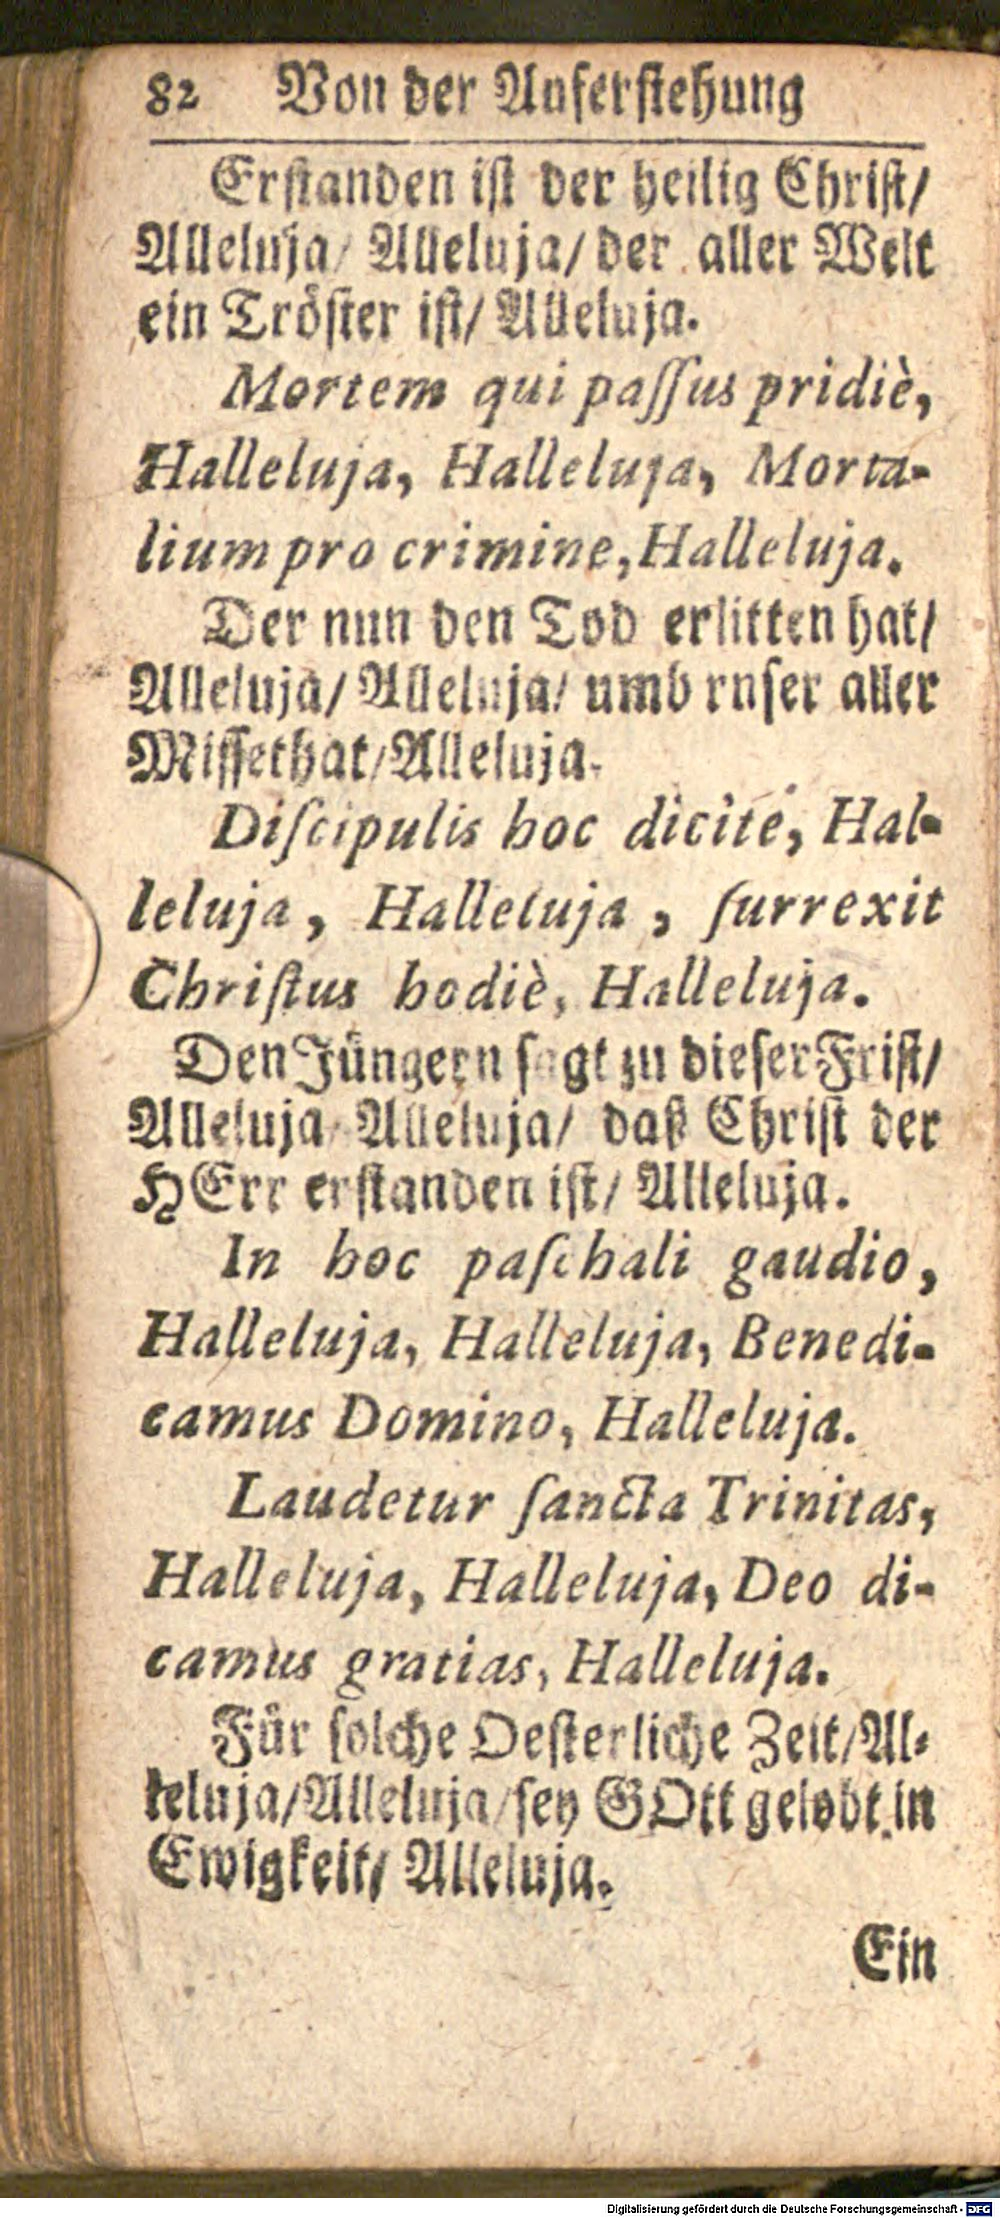 82 Von der Auferstehung
Erstanden ist der heilig Christ/
Alleluja/ Alleluja/ der aller Welt
ein Tröster ist/ Alleluja.
Mortem qui paſſus pridiè,
Halleluja, Halleluja, Morta-
lium pro crimine, Halleluja.
Der nun den Tod erlitten hat/
Alleluja/ Alleluja/ umb rnſer aller
Miſſethat/ Alleluja.
Diſcipulis hoc dicite, Hal-
leluja, Halleluja, ſurrexit
Chriſtus hodiè, Halleluja.
Den Jüngern ſagt zu dieſer Friſt/
Alleluja/ Alleluja/ daß Chriſt der
HErr erſtanden iſt/ Alleluja.
In hoc paſchali gaudio,
Halleluja, Halleluja, Benedi-
camus Domino, Halleluja.
Laudetur ſancta Trinitas,
Halleluja, Halleluja, Deo di-
camus gratias, Halleluja.
Für ſolche Oeſterliche Zeit/ Al-
leluja/ Alleluja/ ſey GOtt gelobt in
Ewigkeit/ Alleluja.
Ein
Digitalisierung gefördert durch die Deutsche Forschungsgemeinschaft - DFG